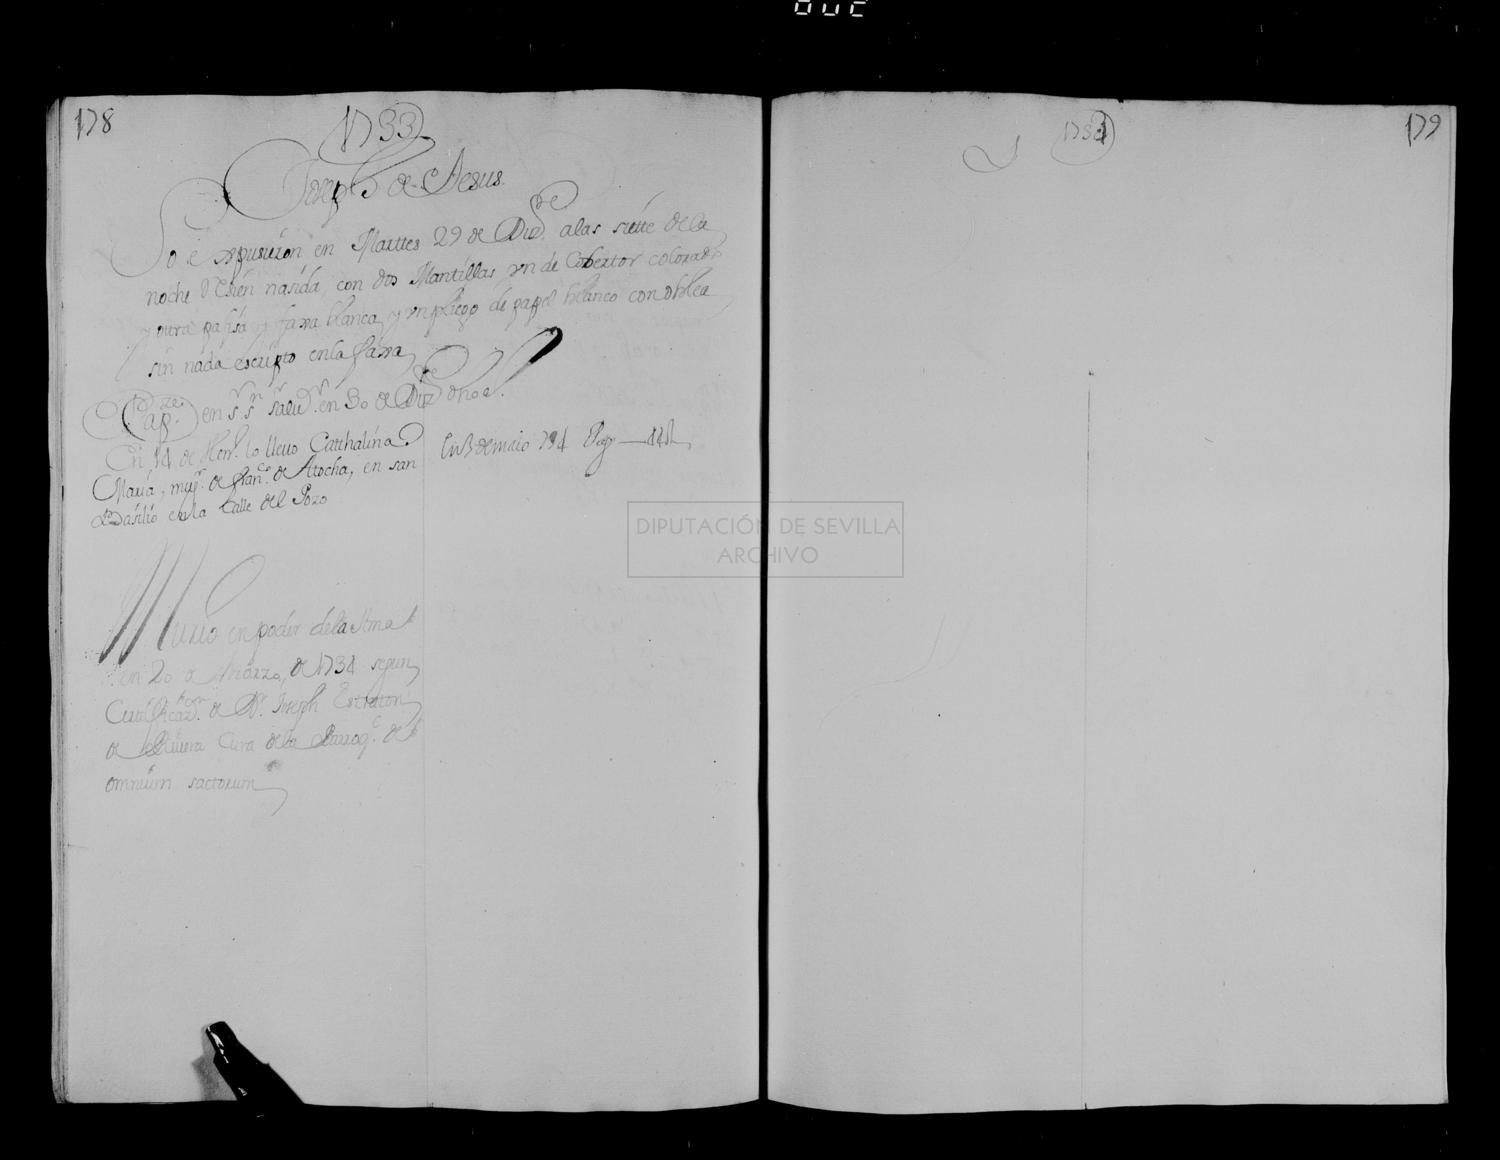 178
1733
Joseph de Jesus.
Lo expusieron en Marttes 29 de Dizre. alas siette de la
noche Resien nasida, con dos Mantillas vn de Cobertor colorado
y outra pajisa y faxa blanca y vn pliego de papel blanco con oblea
sin nada escripto en la faxa
Capze. en salud. en 30 de Dizre dho
En 14 de Hen.o lo lleuo Catthalina
Maria, muj.r de Fran.co de Atocha, en san
Basilio en la Calle del Pozo
En 3 de maio 734 Pag
Murio en poder de la Ama
en 20 de Marzo, de 1734 segun
Certificaz.on de Dn. Joseph
de Rivera Cura de la Parroq.a de
omnium sactorum
1734
179
DIPUTACIÓN DE SEVILLA
ARCHIVO